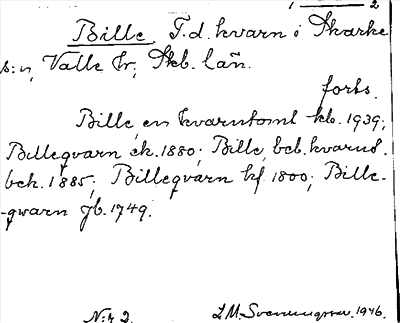 2
Bille T.d. kvarn i Skarke
s:n, Valle hr, Skb. län.
forts.
Bille, en kvarntomt kb. 1939;
Billeqvarn ek. 1880; Bille, beb. kvarnst.
bek. 1885; Billeqvarn kf 1800; Bille-
-qwarn jb. 1749.
N:r 2. L M. Svenungsson. 1946.